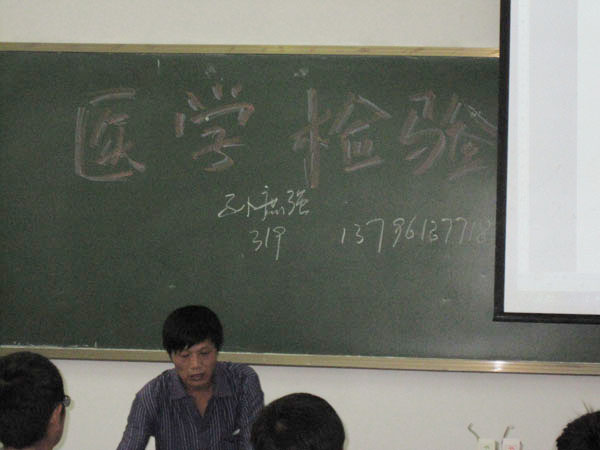 医学检验
孙庶强
319 13796137718